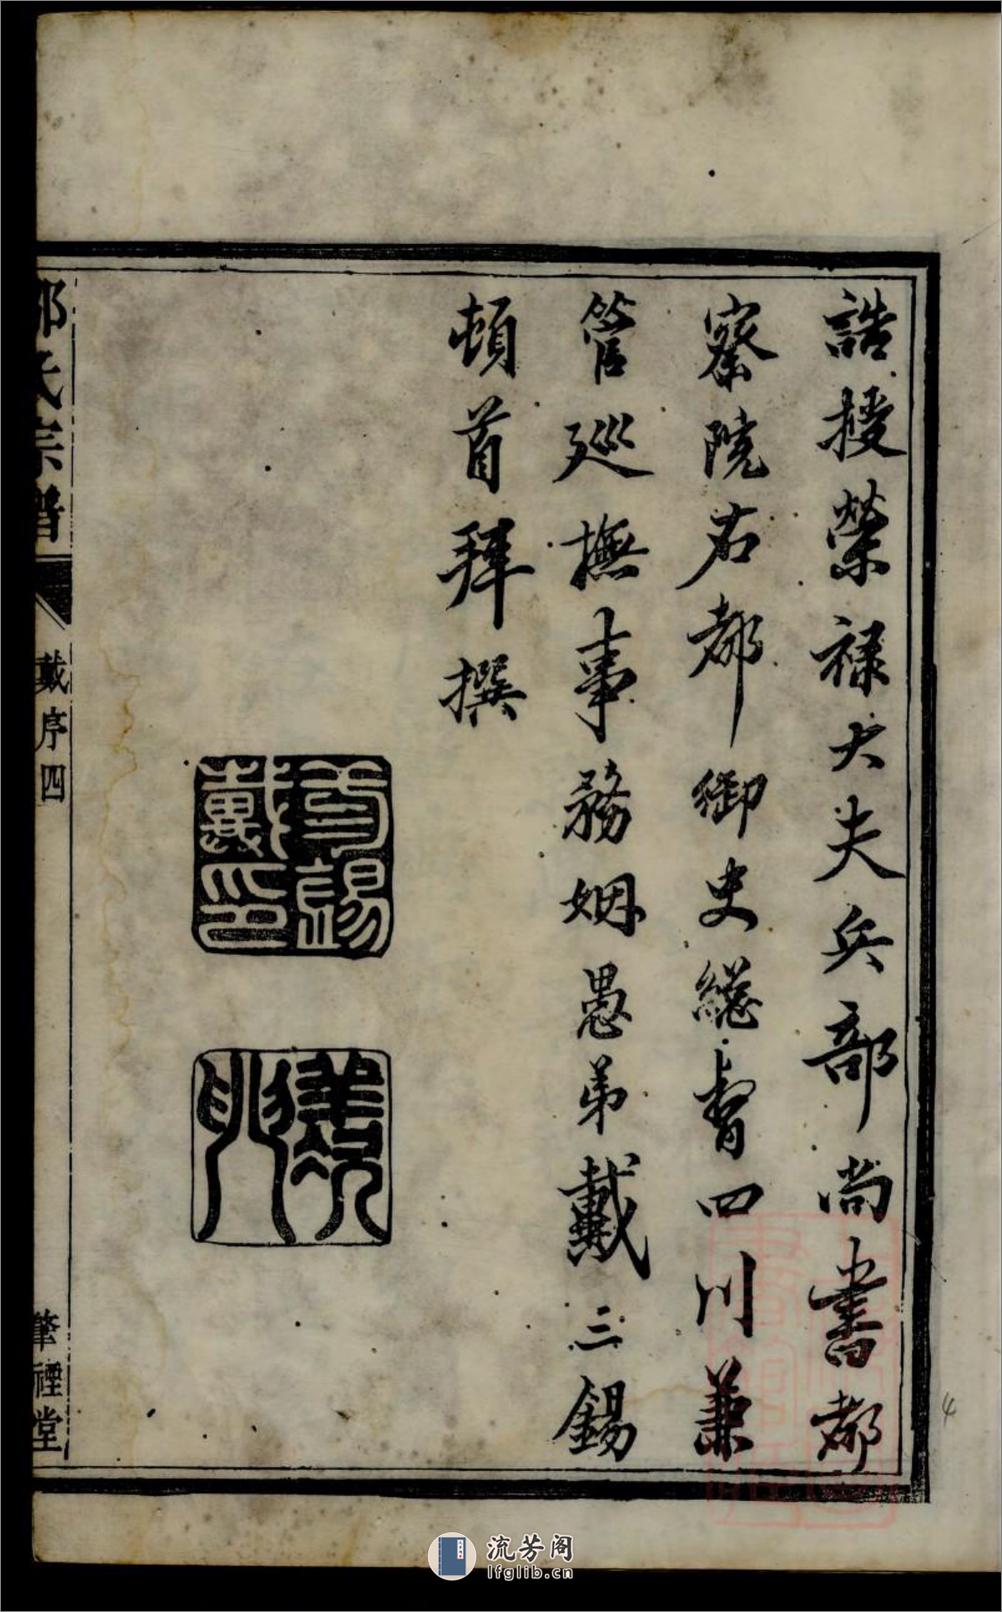 誥授榮祿大夫兵部尚書都
察院右都御史緫督四川兼
管廵撫事務姻愚弟戴三錫
頓首拜撰
氏宗譜
戴序四
肇禋堂
4
流芳阁
lfglib.cn